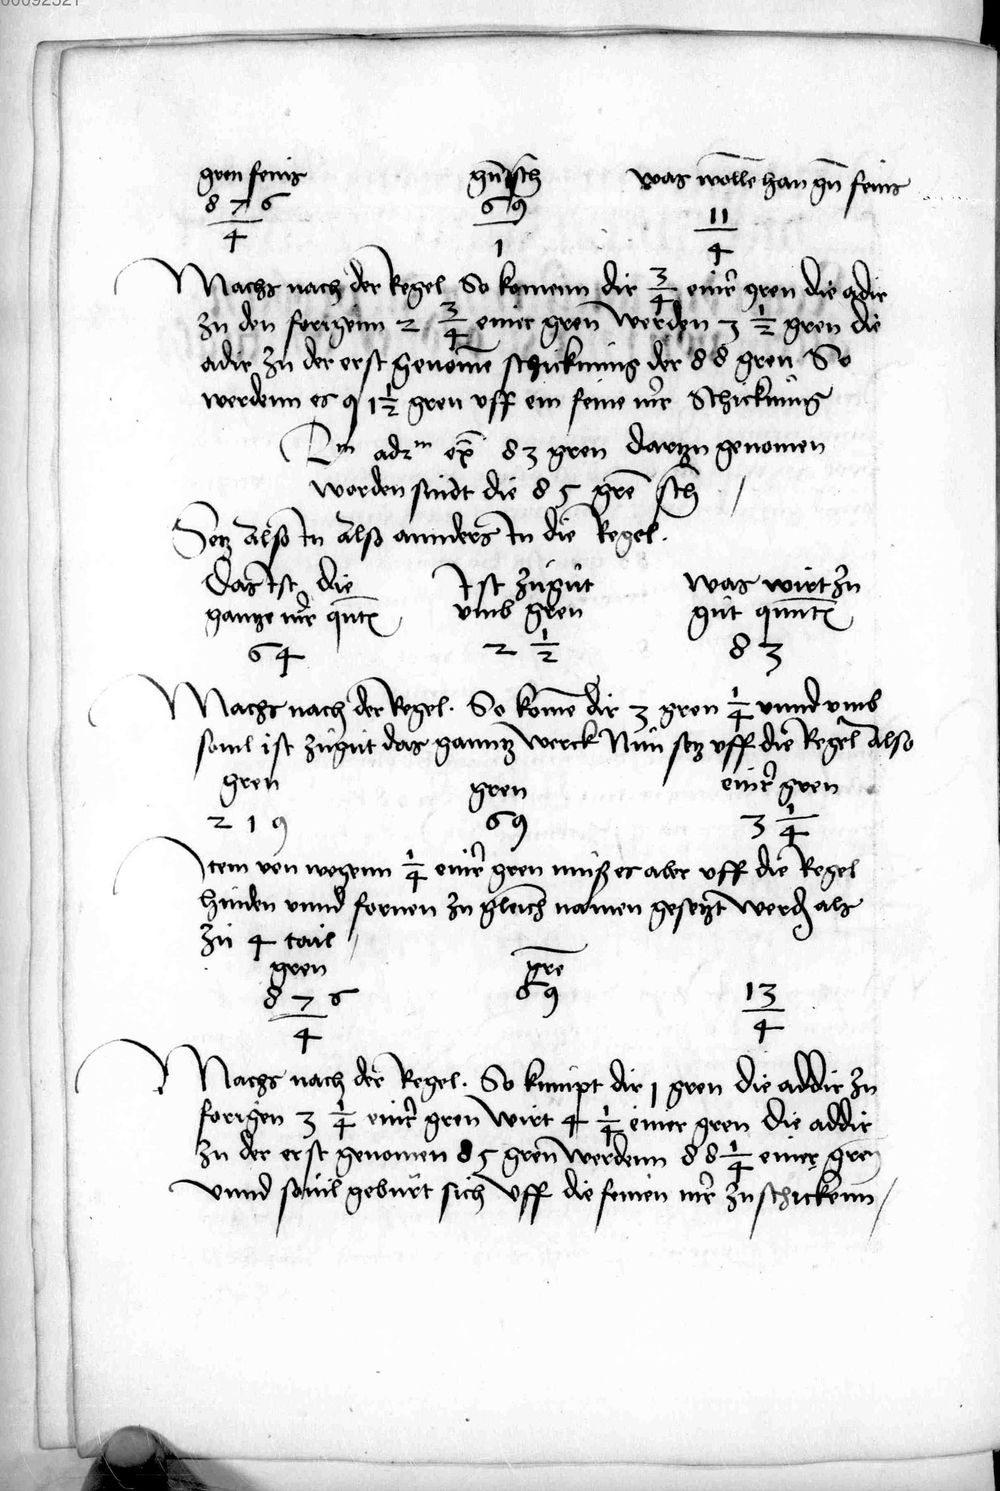 00092521
gren feins gren sch was wolle han gn feins
876/4 69/1 11/4
Machs nach der Regel So komenn dir 3/4 einer gren die adir
zu den forigenn 2 3/4 einer gren werden 3 1/2 gren die
adir zu der erst genome schicknung der 88 gren So
werdenn es 91 1/2 gren uff ein feine mr Schicknung
ex 83 gren dartzu genomen
worden sindt die 85 gre sch
Setz also In also annders In die Regel.
Das Ist die Ist zugut was wirt zu
gantze mr qnt umb gren gut quint
64 2 1/2 83
Machs nach der Regel. So kome dir 3 gren 1/4 unnd umb
souil ist zugut das ganntz werck Nun setz uff die Regel also
gren gren einer gren
219 69 3 1/4
Item von wegenn 1/4 einer gren muß es aber uff die Regel
hinden unnd fornen zu gleich namen gesetzt werd als
zu 4 tail
gren gre
876/4 69 13/4
Machs nach der Regel. So kumpt dir 1 gren die addir zu
forigen 3 1/4 einer gren wirt 4 1/4 einer gren die addir
zu der erst genomen 85 gren werdenn 88 1/4 einer gren
unnd souil geburt sich uff die feinen mr zu schickenn